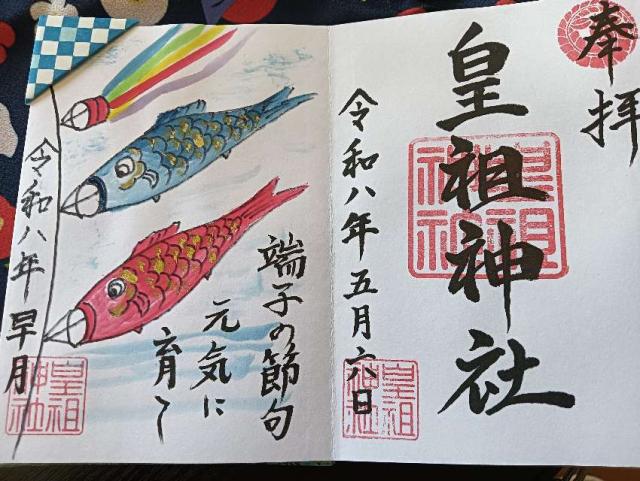 奉拝
皇祖神社
令和八年五月六日
皇祖
神社
皇祖
神社
端子の節句
元気に
育て
令和八年早月
皇祖
神社